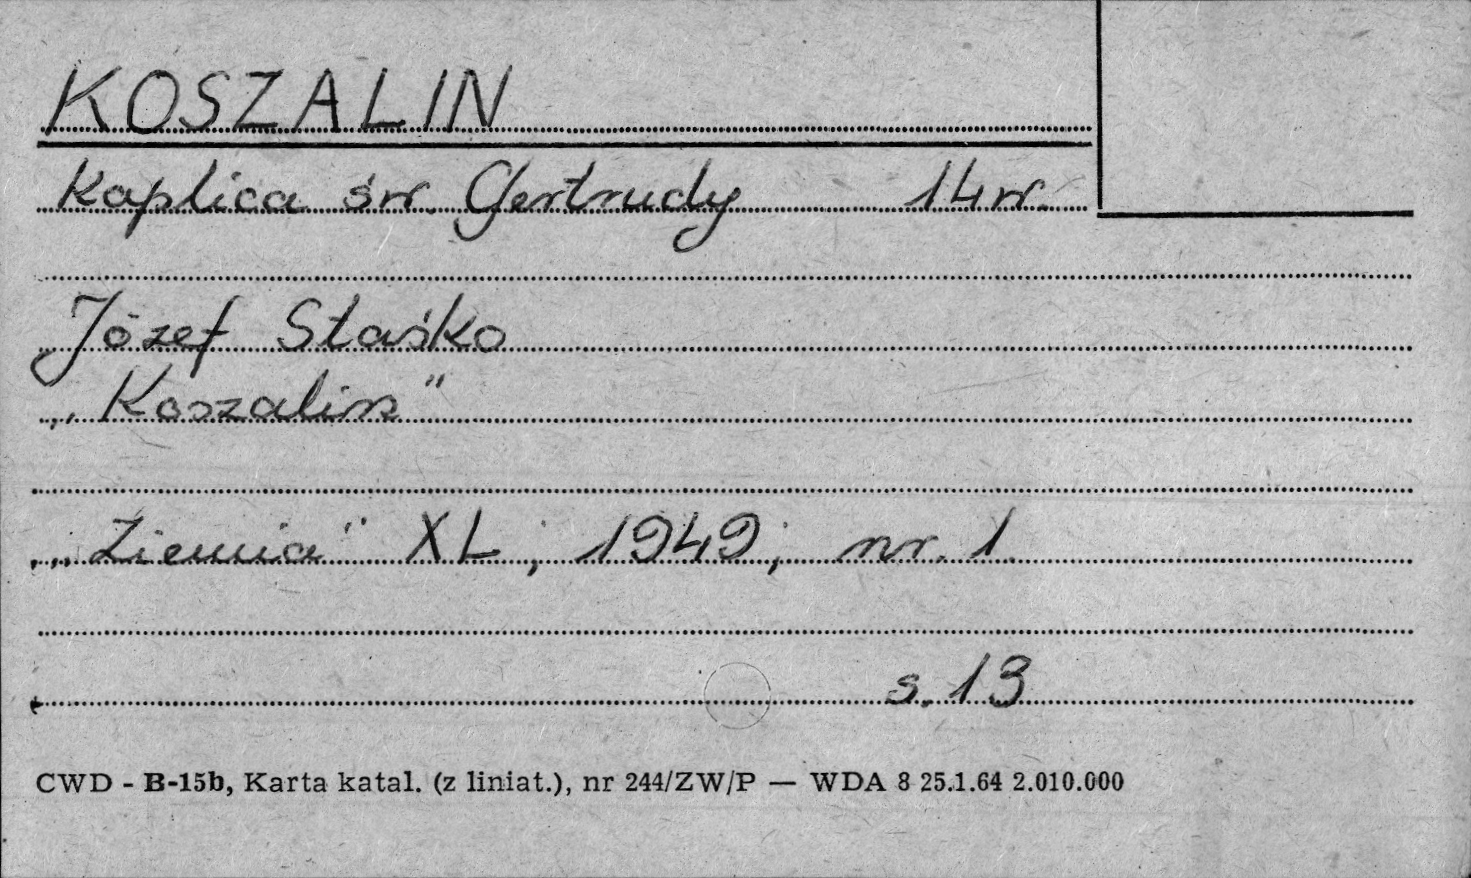 KOSZALIN
Kaplica św. Gertrudy 14 w.
Józef Staśko
„Koszalin"
„Ziemia" XL, 1949, nr. 1.
s. 13
CWD - B-15b, Karta katal. (z liniat.), nr 244/ZW/P — WDA 8 25.1.64 2.010.000